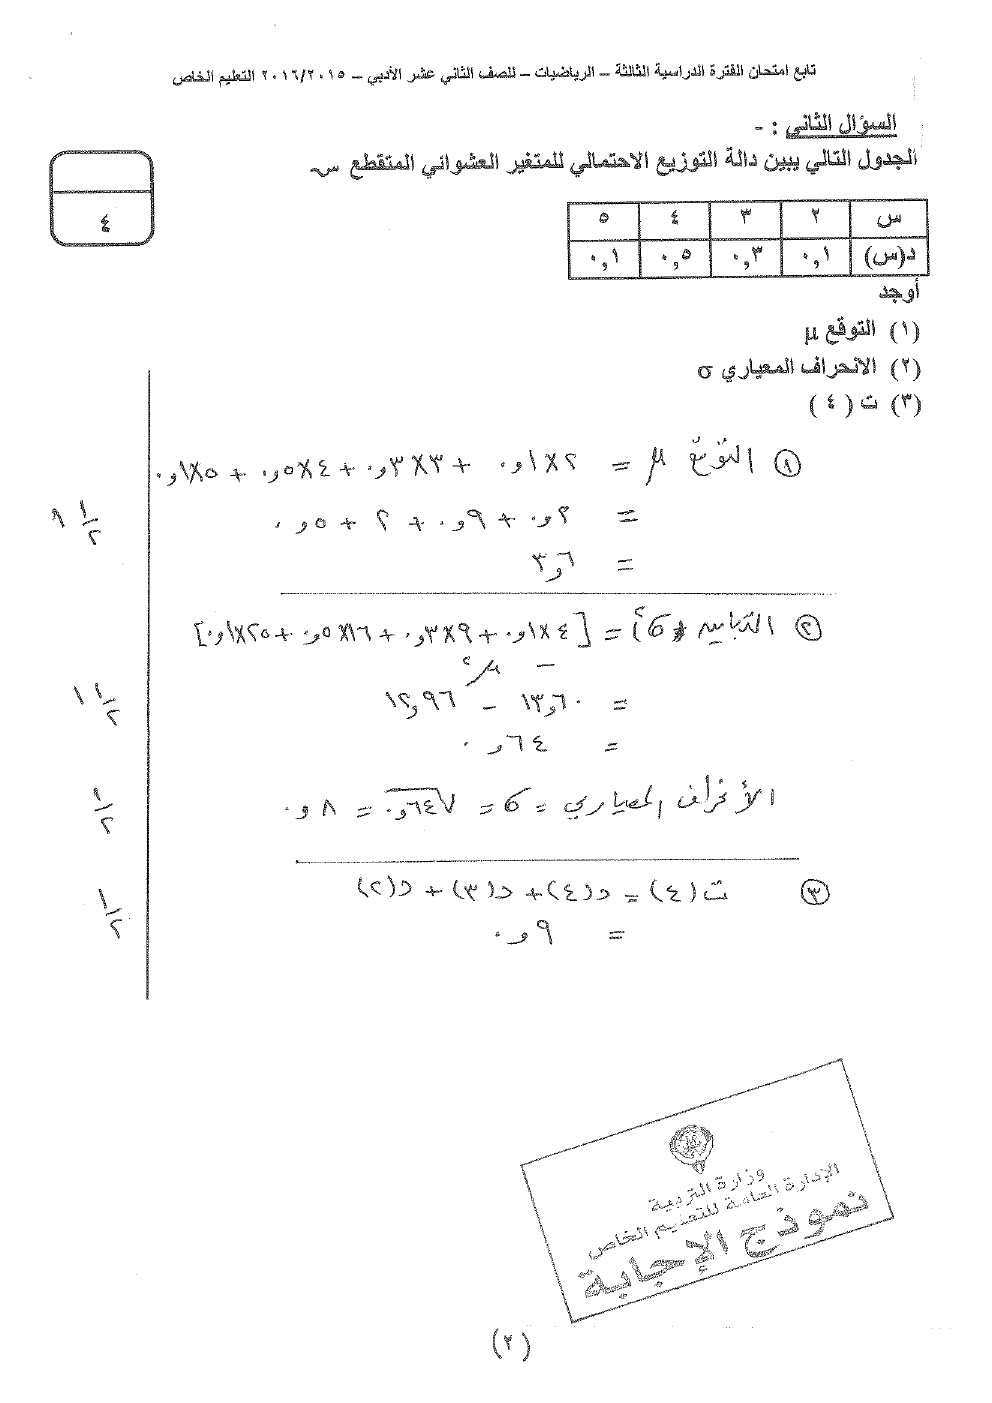 تابع امتحان الفترة الدراسية الثالثة – الرياضيات – للصف الثاني عشر الأدبي – ٢٠١٦/٢٠١٥ التعليم الخاص
السؤال الثاني : -
الجدول التالي يبين دالة التوزيع الاحتمالي للمتغير العشوائي المتقطع س
٤
س ٢ ٣ ٤ ٥
د(س) ٠,١ ٠,٣ ٠,٥ ٠,١
أوجد
(١) التوقع μ
(٢) الانحراف المعياري σ
(٣) ت (٤)
① التوقع μ = ٢×٠,١ + ٣×٠,٣ + ٤×٠,٥ + ٥×٠,١
= ٠,٢ + ٠,٩ + ٢ + ٠,٥
١ ١/٢
= ٣,٦
② التباين (σ²) = [٤×٠,١ + ٩×٠,٣ + ١٦×٠,٥ + ٢٥×٠,١]
- μ²
= ١٣,٦٠ - ١٢,٩٦
١ ١/٢
= ٠,٦٤
الانحراف المعياري = σ = √٠,٦٤ = ٠,٨
١/٢
③ ت(٤) = د(٤) + د(٣) + د(٢)
١/٢
= ٠,٩
وزارة التربية
الإدارة العامة للتعليم الخاص
نموذج الإجابة
(٢)